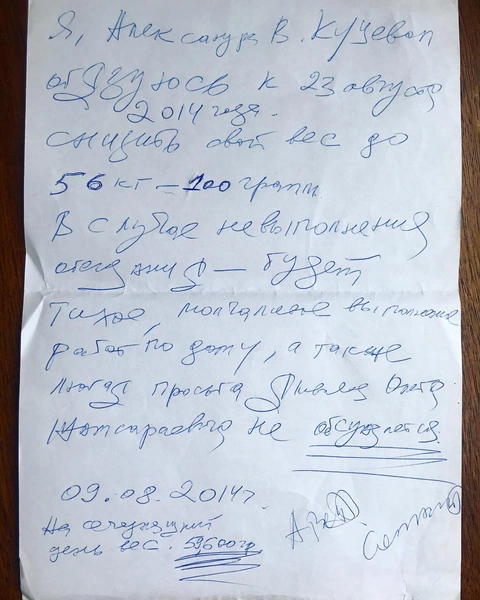 Я, Александра В. Куцевол
обязуюсь к 23 августа
2014 года.
снизить свой вес до
56 кг – 100 грамм
В случае невыполнения
– будет
Тихое, молчаливое выполнение
работ по дому, а также
любая просьба
не обсуждается.
09.08.2014г.
На сегодняшний
день вес. 59,600гр